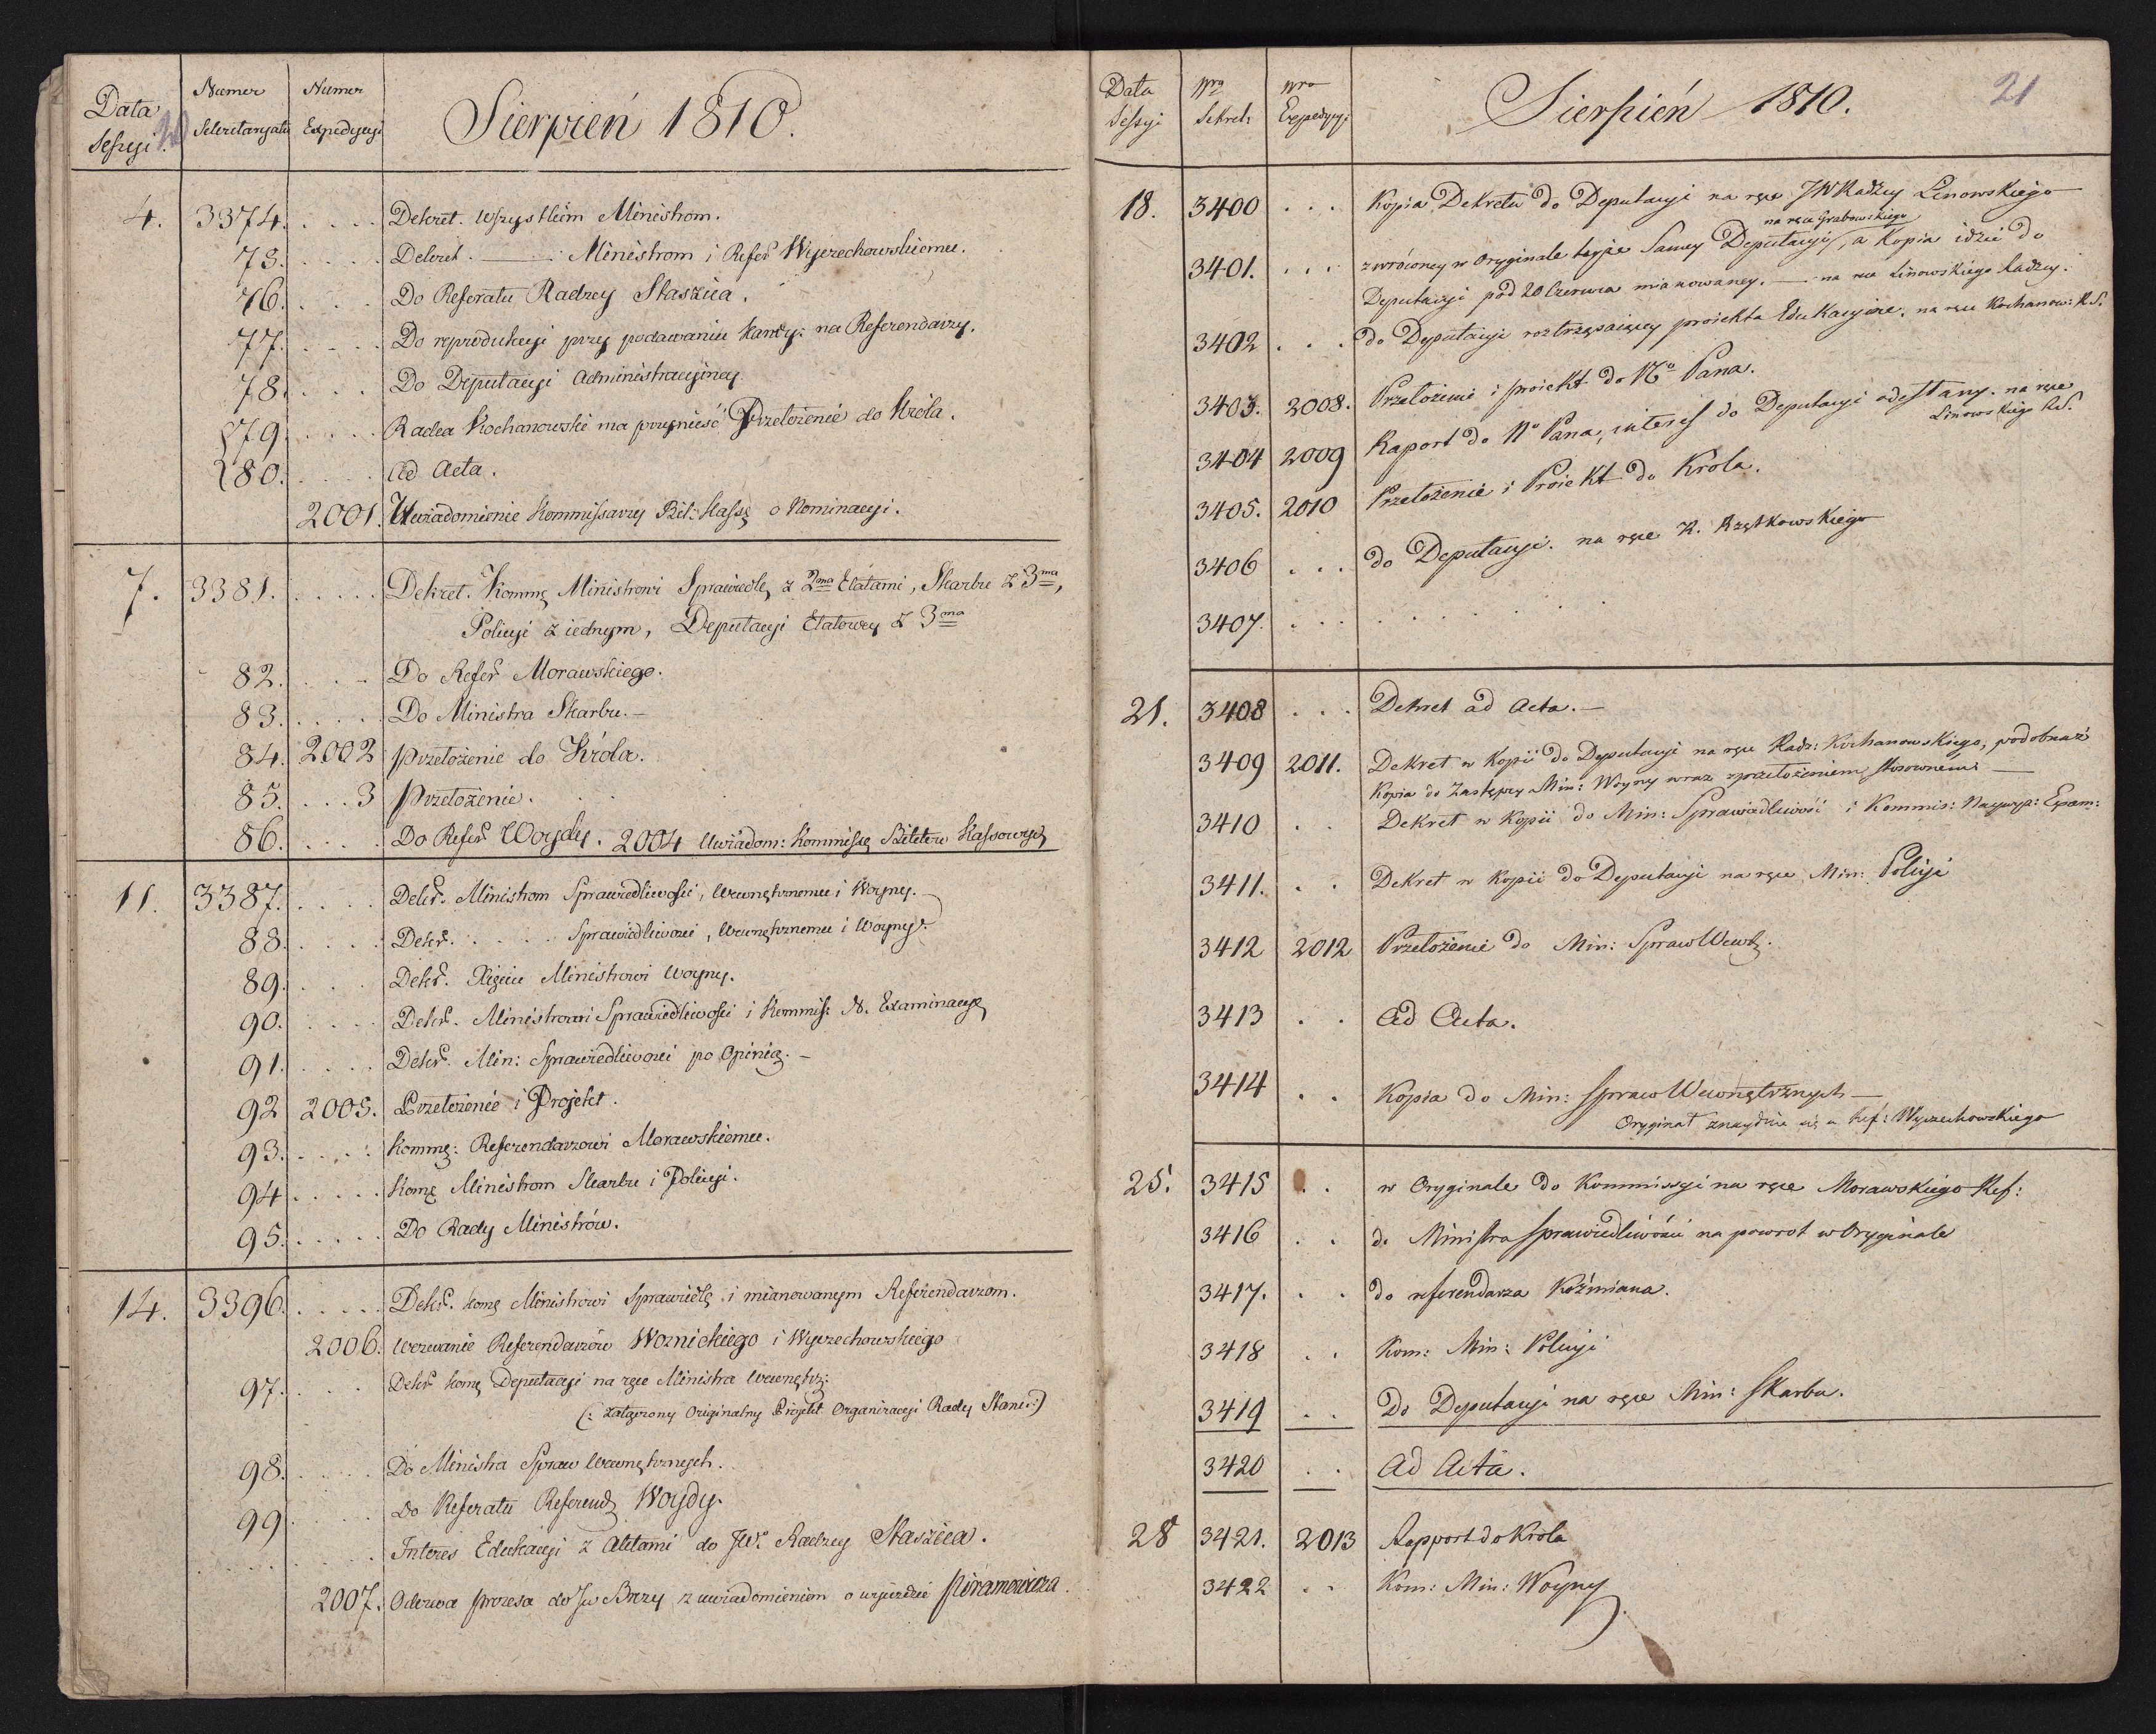 Data Sessyi. Numer Sekretaryatu Numer Expedycyi Sierpień 1810.
4. 3374. . . . . Dekret. wszystkim Ministrom.
75. . . . . Dekret. —— Ministrom i Refer Wyczechowskiemu.
76. . . . . Do Referatu Radzcy Staszica.
77. . . . . Do reprodukcyi przy podawaniu kandy: na Referendarzy.
78. . . . . Do Deputacyi Administracyiney
79. . . . . Radca Kochanowski ma przynieść Przełożenie do Króla.
80. . . . . Ad Acta.
2001. Uwiadomienie Kommissarzy Bil: Kass o Nominacyi.
7. 3381. . . . . . Dekret. Kommę Ministrowi Sprawiedlę z 2ma Etatami, Skarbu z 3ma,
Policyi z iednym, Deputacyi Etatowey z 3ma
82. . . . Do Refer Morawskiego.
83. . . . . Do Ministra Skarbu.—
84. 2002 przełożenie do Króla.
85. . . . 3 Przełożenie.
86. . . . . Do Refer Woydy. 2004 Uwiadom: Kommissę Biletów Kassowych
11. 3387. . . . . Dekr. Ministrom Sprawiedliwości, Wewnętrznemu i Woyny.
88. . . . . Dekr. . . . . . Sprawiedliwości, Wewnętrznemu i Woyny.
89. . . . Dekr. Xięciu Ministrowi Woyny.
90. . . . . Dekr. Ministrowi Sprawiedliwości i Kommis: N. Examinacyi
91. . . . . Dekr. Min: Sprawiedliwości po Opinią.—
92 2005. Przełożenie i Projekt.
93. . . . . Kommę: Referendarzowi Morawskiemu.
94 . . . . . Komę Ministrom Skarbu i Policyi.
95. . . . . . Do Rady Ministrów.
14. 3396. . . . . . Dekr. komę Ministrowi Sprawiedlę i mianowanym Referendarzom.
2006. Wezwanie Referendarzów Woznickiego i Wyczechowskiego
97. . . . Dekr komę Deputacyi na ręce Ministra Wewnętrz:
(: załączony Originalny Projekt Organizacyi Rady Stanu:)
98. . . . . Do Ministra Spraw Wewnętrznych.
99 . . . . Do Referatu Referend Woydy.
. . . . . . . . Interes Edukacyi z Aktami do JW. Radzcy Staszica.
2007. Odezwa prezesa do Jw Brezy z uwiadomieniem o wyieździe Piramowicza.
Data Sessyi Nro Sekret: Nro Expedycyi Sierpień 1810. 21
18. 3400 . . . Kopia Dekretu do Deputacyi na ręce JW Radzcy Linowskiego
na ręce Grabowskiego
3401. . . . zwróconey w Oryginale teyże Samey Deputacyi, a Kopia idzie do
Deputacyi pod 20 Czerwca mianowaney. — na ręce Linowskiego Radzcy.
3402 . . . do Deputacyi roztrząsaiącey proiekta Edukacyine, na ręce Kochanow: R.S.
3403. 2008. Przełożenie i proiekt do No Pana.
3404 2009 Raport do No Pana, interes do Deputacyi odesłany. na ręce
Linowskiego R.S.
3405. 2010 Przełożenie i Proiekt do Króla.
3406 . . . do Deputacyi. na ręce R. Rzętkowskiego
3407. . . . . . .
21. 3408 . . . Dekret ad Acta.—
3409 2011. Dekret w Kopii do Deputacyi na ręce Radz: Kochanowskiego, podobnaż
Kopia do Zastępcy Min: Woyny wraz z przełożeniem stosownemi —
3410 . . Dekret w Kopii do Min: Sprawiedliwości i Kommis: Naywyż: Exam:
3411. . . Dekret w Kopii do Deputacyi na ręce Min: Policyi
3412 2012 Przełożenie do Min: Spraw Wewtz.
3413 . . Ad Acta.
3414 . . Kopia do Min: Spraw Wewnętrznych —
Oryginał znayduie się u Ref: Wyczechowskiego
25. 3415 . . w Oryginale do Kommissyi na ręce Morawskiego Ref:
3416 . . do Ministra Sprawiedliwości na powrot w Oryginale
3417. . . do referendarza Koźmiana.
3418 . . Kom: Min: Policyi
3419 . . Do Deputacyi na ręce Min: Skarbu.
3420 . . Ad Acta.
28 3421. 2013 Rapport do Króla
3422 . . Kom: Min: Woyny